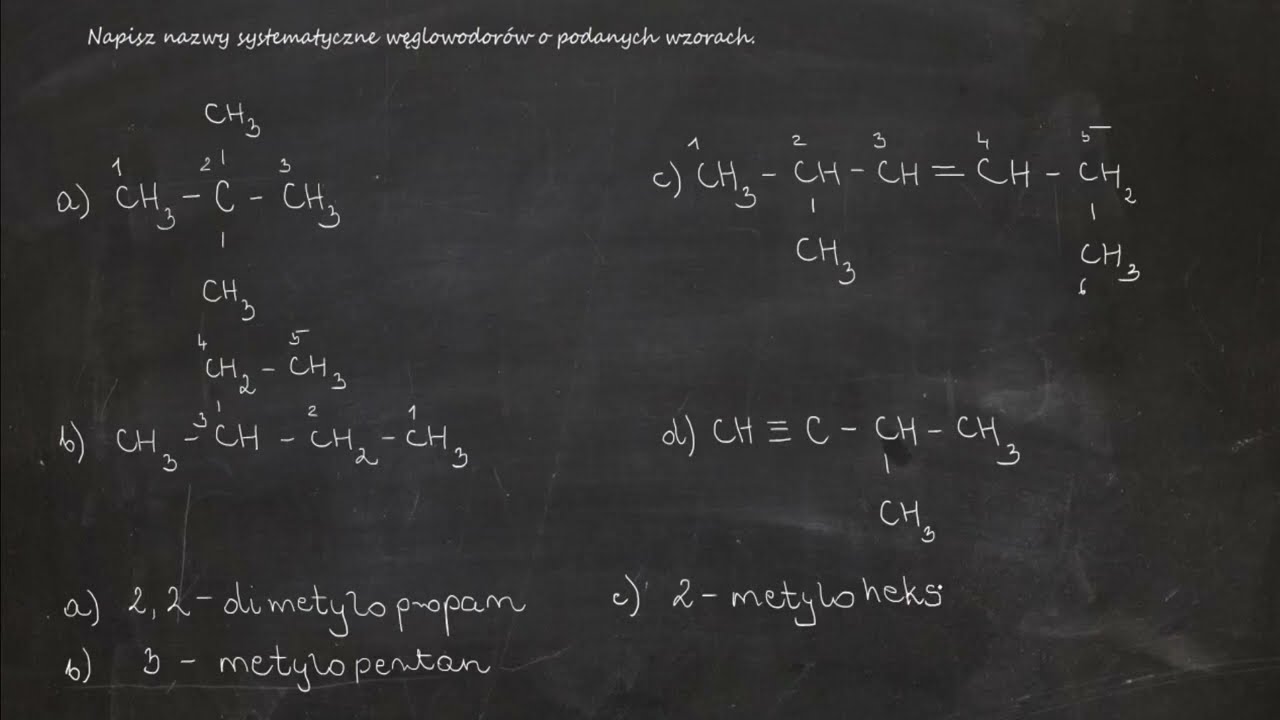 Napisz nazwy systematyczne węglowodorów o podanych wzorach.
CH₃
1 2 3
a) CH₃ - C - CH₃
CH₃
4 5
CH₂ - CH₃
3 2 1
b) CH₃ - CH - CH₂ - CH₃
1 2 3 4 5
c) CH₃ - CH - CH = CH - CH₂
CH₃ CH₃
6
d) CH ≡ C - CH - CH₃
CH₃
a) 2,2 - dimetylopropan
b) 3 - metylopentan
c) 2 - metyloheks